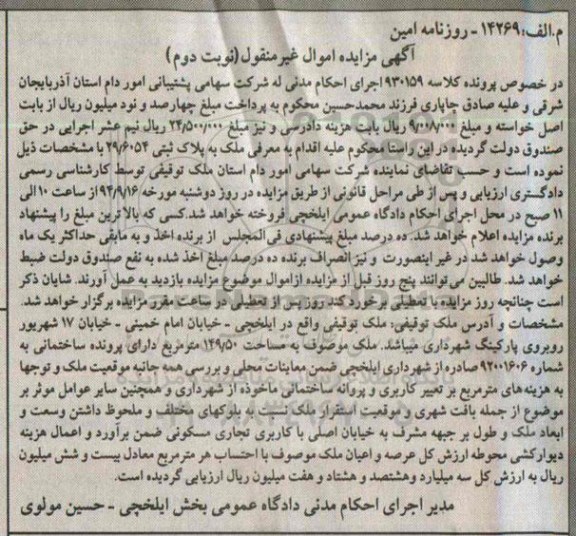 م.الف: ۱۴۲۶۹ - روزنامه امین
آگهی مزایده اموال غیر منقول (نوبت دوم)
در خصوص پرونده کلاسه ۹۳۰۱۵۹ اجرای احکام مدنی له شرکت سهامی پشتیبانی امور دام استان آذربایجان
شرقی و علیه صادق چاپاری فرزند محمدحسین محکوم به پرداخت مبلغ چهارصد و نود میلیون ریال از بابت
اصل خواسته و مبلغ ۹/۰۰۸/۰۰۰ ریال بابت هزینه دادرسی و نیز مبلغ ۲۴/۵۰۰/۰۰۰ ریال نیم عشر اجرایی در حق
صندوق دولت گردیده در این راستا محکوم علیه اقدام به معرفی ملک به پلاک ثبتی ۲۹/۶۰۵۴ با مشخصات ذیل
نموده است و حسب تقاضای نماینده شرکت سهامی امور دام استان ملک توقیفی توسط کارشناسی رسمی
دادگستری ارزیابی و پس از طی مراحل قانونی از طریق مزایده در روز دوشنبه مورخه ۹۴/۹/۱۶ از ساعت ۱۰ الی
۱۱ صبح در محل اجرای احکام دادگاه عمومی ایلخچی فروخته خواهد شد. کسی که بالاترین مبلغ را پیشنهاد
برنده مزایده اعلام خواهد شد. ده درصد مبلغ پیشنهادی فی المجلس از برنده اخذ و به مابقی حداکثر یک ماه
وصول خواهد شد در غیر اینصورت و نیز انصراف برنده ده درصد مبلغ اخذ شده به نفع صندوق دولت ضبط
خواهد شد. طالبین می توانند پنج روز قبل از مزایده از اموال موضوع مزایده بازدید به عمل آورند. شایان ذکر
است چنانچه روز مزایده با تعطیلی برخورد کند روز پس از تعطیلی در ساعت مقرر مزایده برگزار خواهد شد.
مشخصات و آدرس ملک توقیفی: ملک توقیفی واقع در ایلخچی - خیابان امام خمینی - خیابان ۱۷ شهریور
روبروی پارکینگ شهرداری میباشد. ملک موصوف به مساحت ۱۴۹/۵۰ مترمربع دارای پرونده ساختمانی به
شماره ۹۲۰۰۱۶۰۶ صادره از شهرداری ایلخچی ضمن معاینات محلی و بررسی همه جانبه موقعیت ملک و توجها
به هزینه های مترمربع بر تغییر کاربری و پروانه ساختمانی ماخوذه از شهرداری و همچنین سایر عوامل موثر بر
موضوع از جمله بافت شهری و موقعیت استقرار ملک نسبت به بلوکهای مختلف و ملحوظ داشتن وسعت و
ابعاد ملک و طول بر جبهه مشرف به خیابان اصلی با کاربری تجاری مسکونی ضمن برآورد و اعمال هزینه
دیوارکشی محوطه ارزش کل عرصه و اعیان ملک موصوف با احتساب هر مترمربع معادل بیست و شش میلیون
ریال به ارزش کل سه میلیارد وهشتصد و هشتاد و هفت میلیون ریال ارزیابی گردیده است.
مدیر اجرای احکام مدنی دادگاه عمومی بخش ایلخچی - حسین مولوی